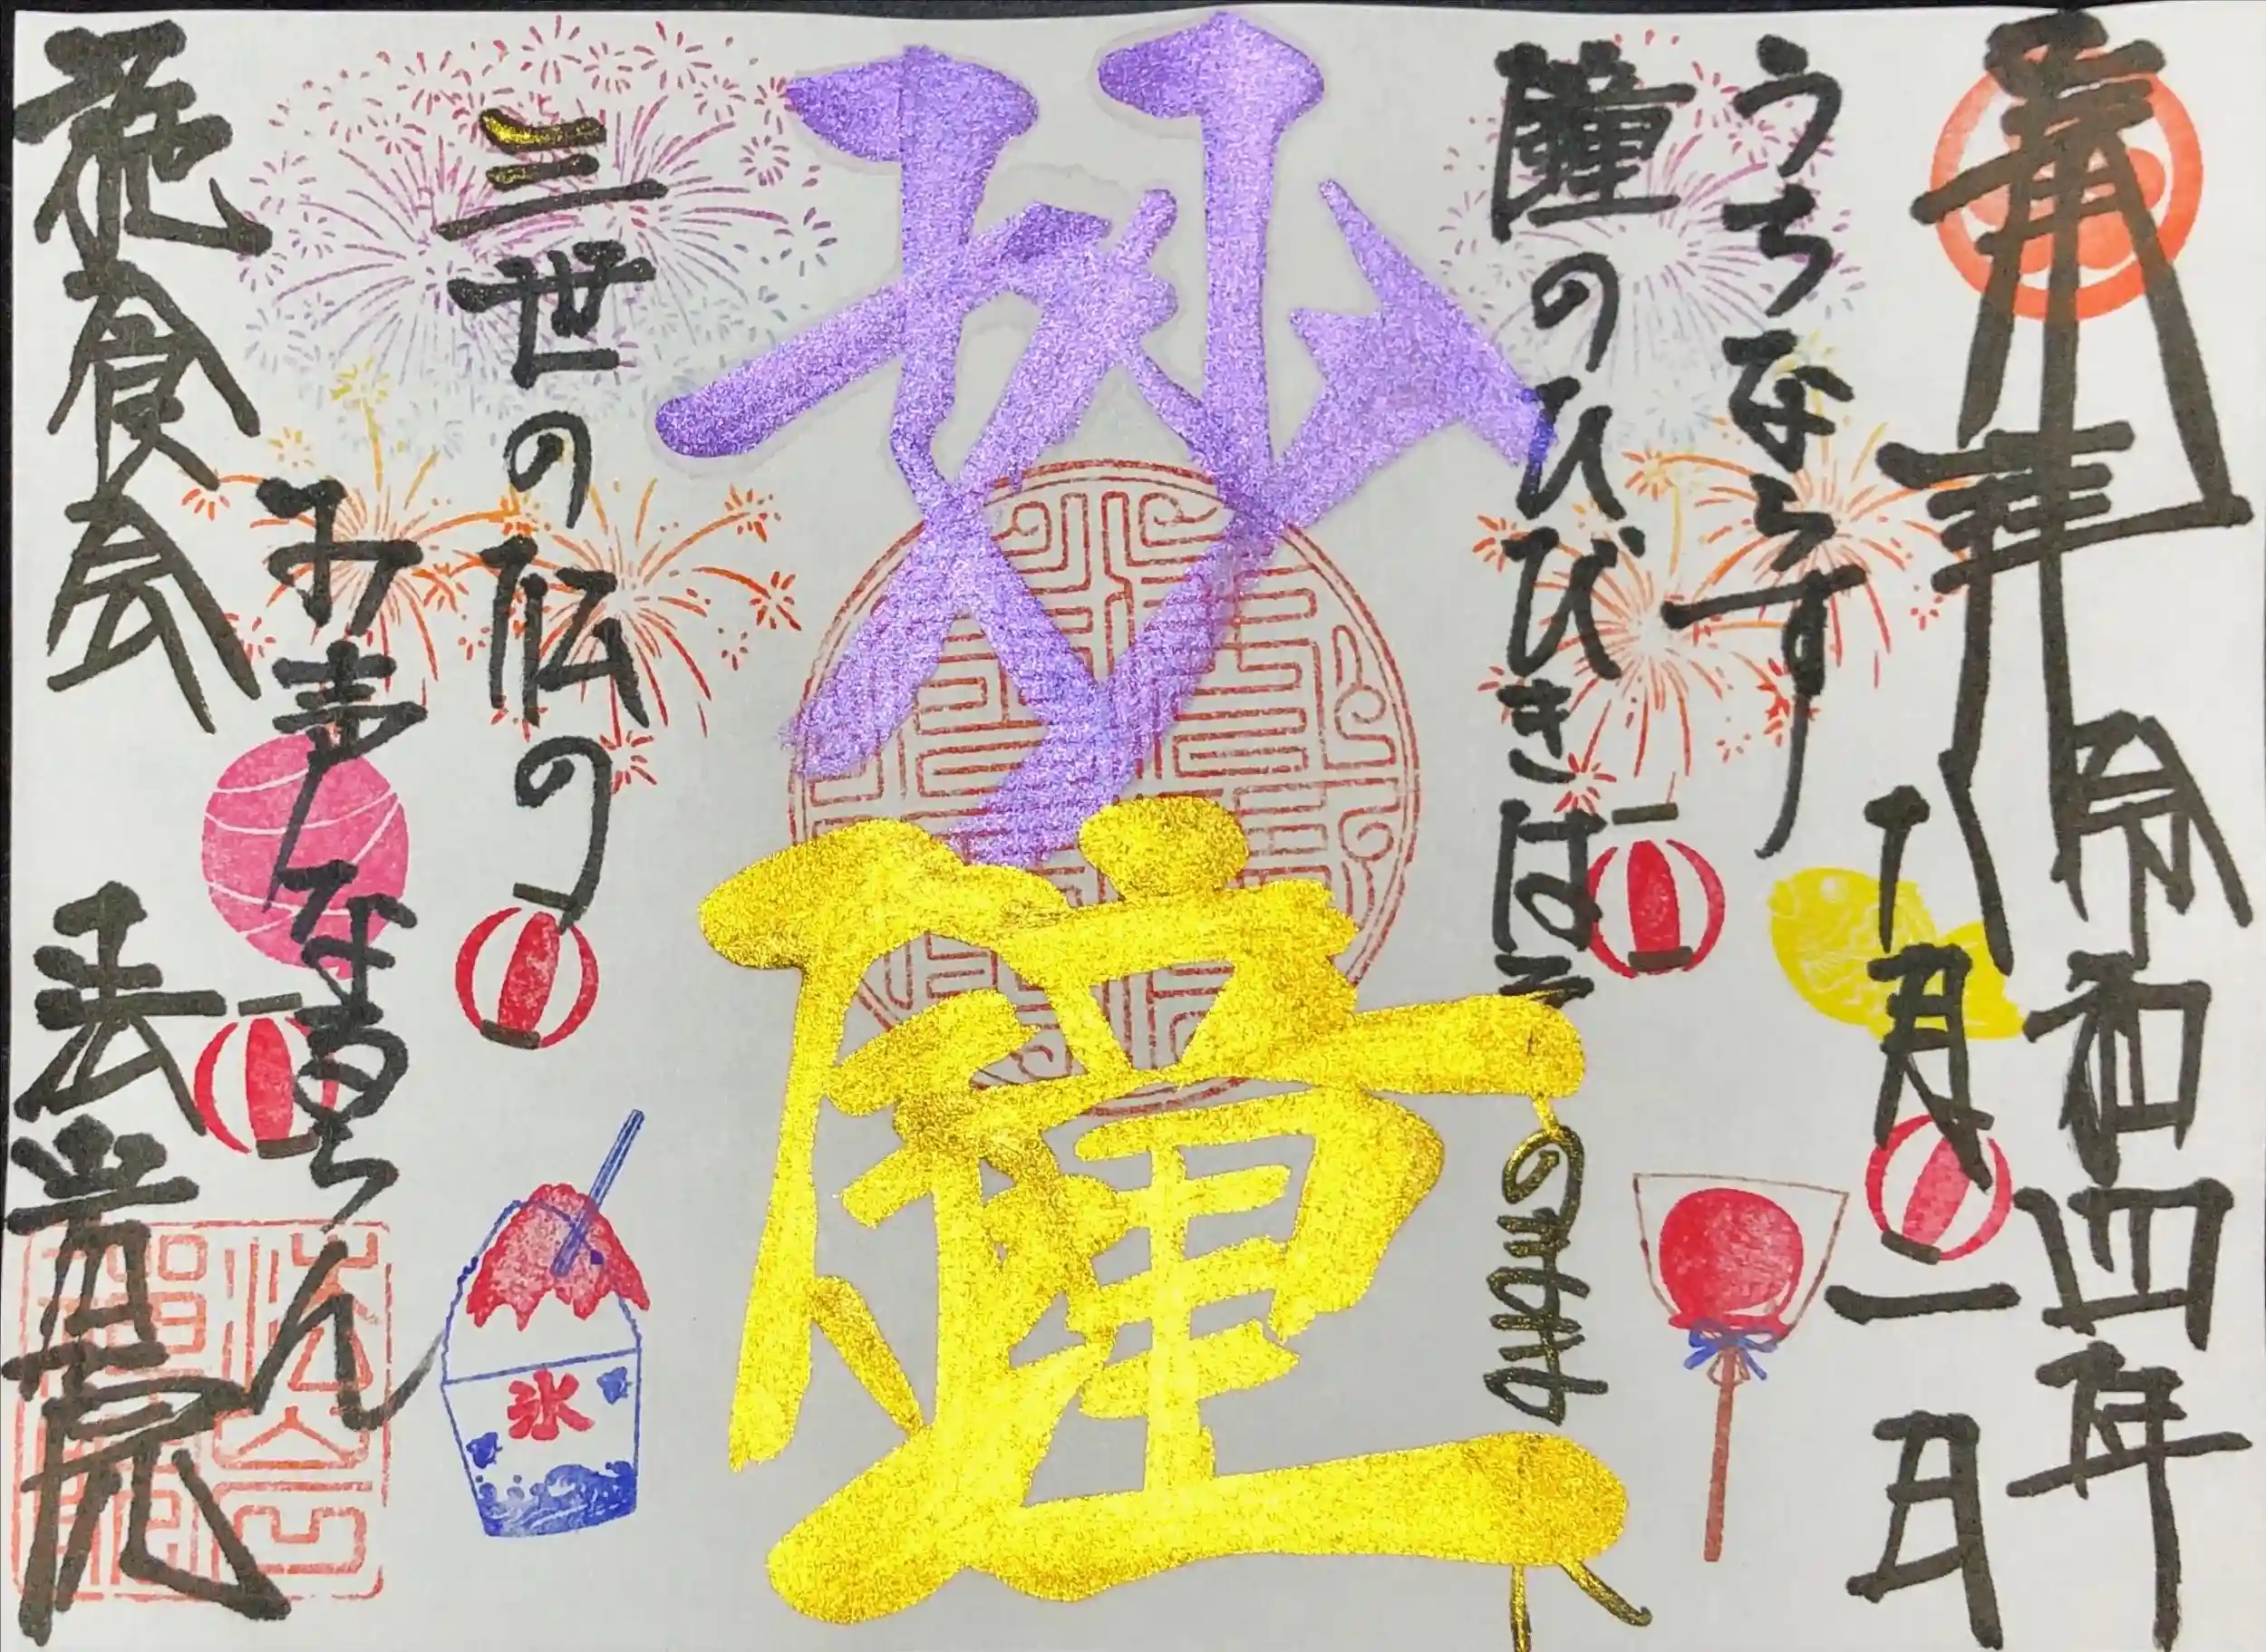 奉拝
令和四年
八月一日
うちならす
鐘のひびきは そのままに
妙鐘
三世の仏の
み声なるらん
施食会
氷